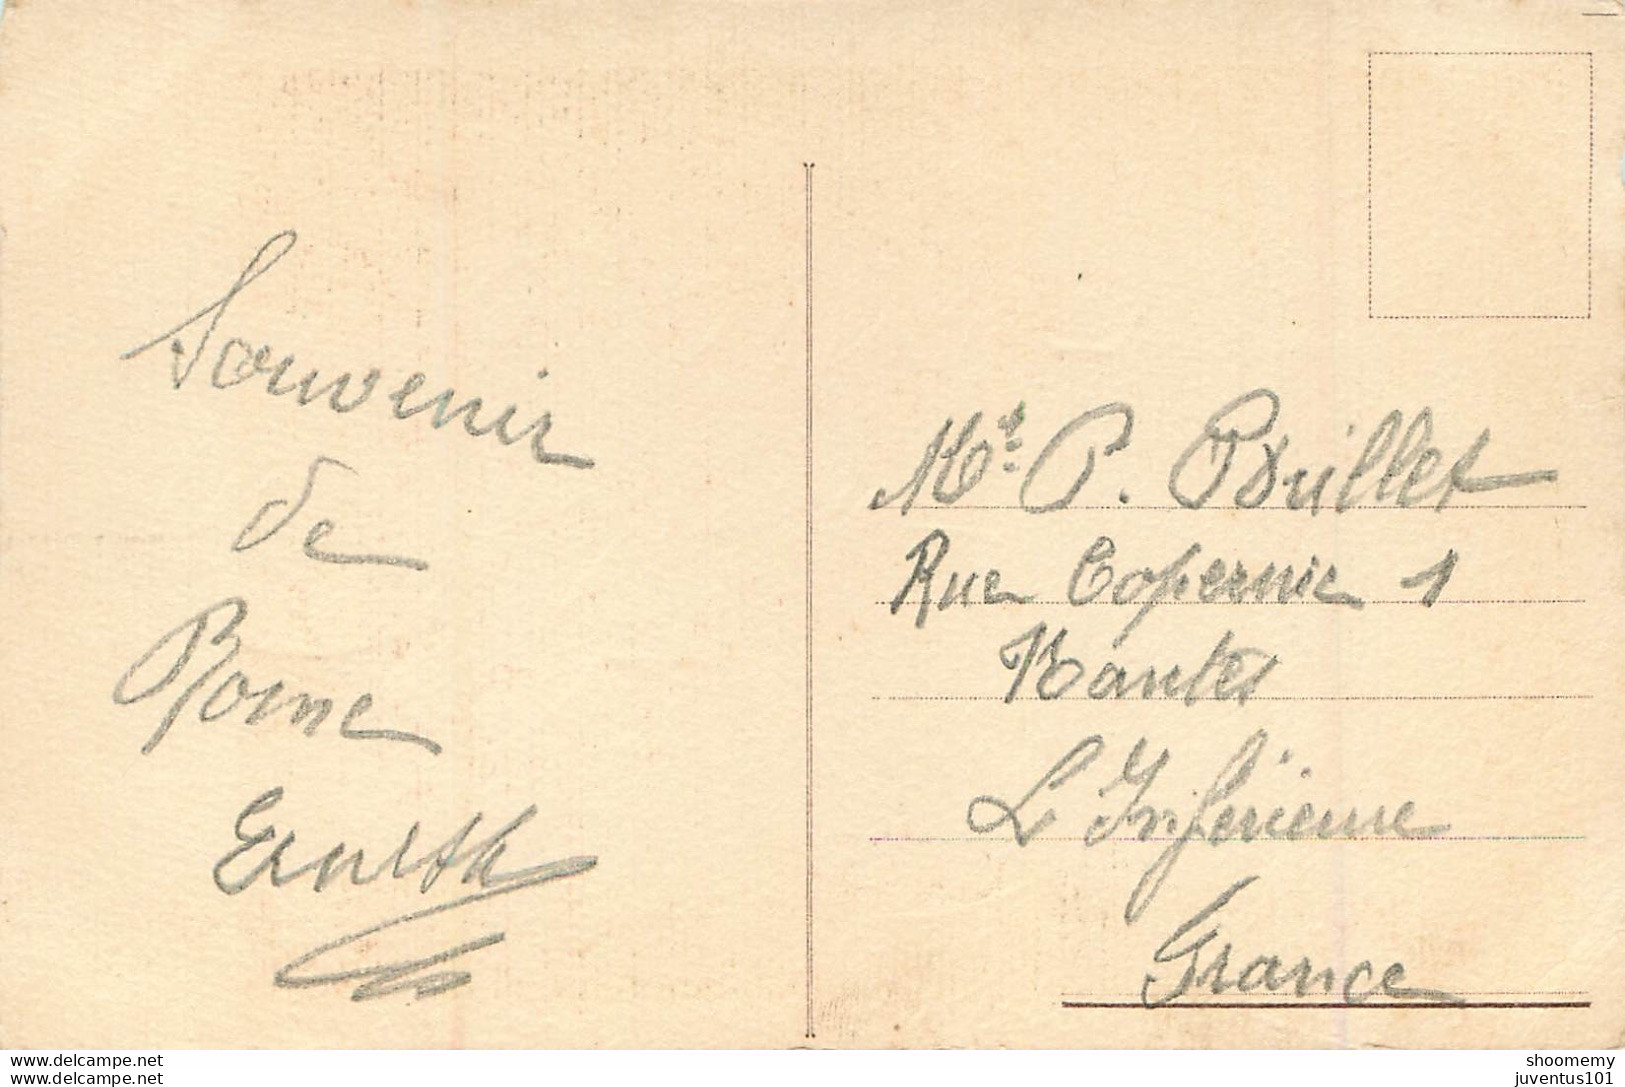 Souvenir
de
Rome
Mr. P. Pouillet
Rue Copernic 1
Nantes
L. Inférieure
France
www.delcampe.net
www.delcampe.net
shoomemy
juventus101